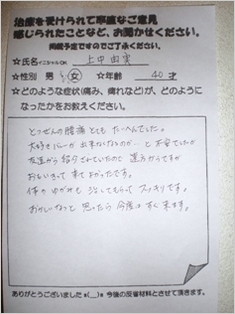 治療を受けられて率直なご意見
感じられたことなど、お聞かせください。
掲載予定ですのでご了承ください。
☆氏名 イニシャルOK 上中由実
☆性別 男 女 ☆年齢 40才
☆どのような症状(痛み、痺れなど)が、どのように
なったかをお教えください。
とつぜんの腰痛で たいへんでした。
大好きバレーが出来なくなるのか…と不安でしたが
友達から紹介されていたので 遠方からですが
おもいきって 来てよかったです。
体の ゆがみも 治してもらって スッキリです。
おかしいなっと 思ったら 今度は すぐ来ます。
ありがとうございました m(__)m 今後の反省材料とさせて頂きます。